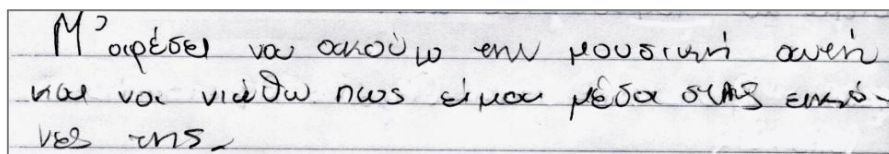 Μ' αρέσει να ακούω την μουσική αυτή
και να νιώθω πως είμαι μέσα στις εικό-
νες της.